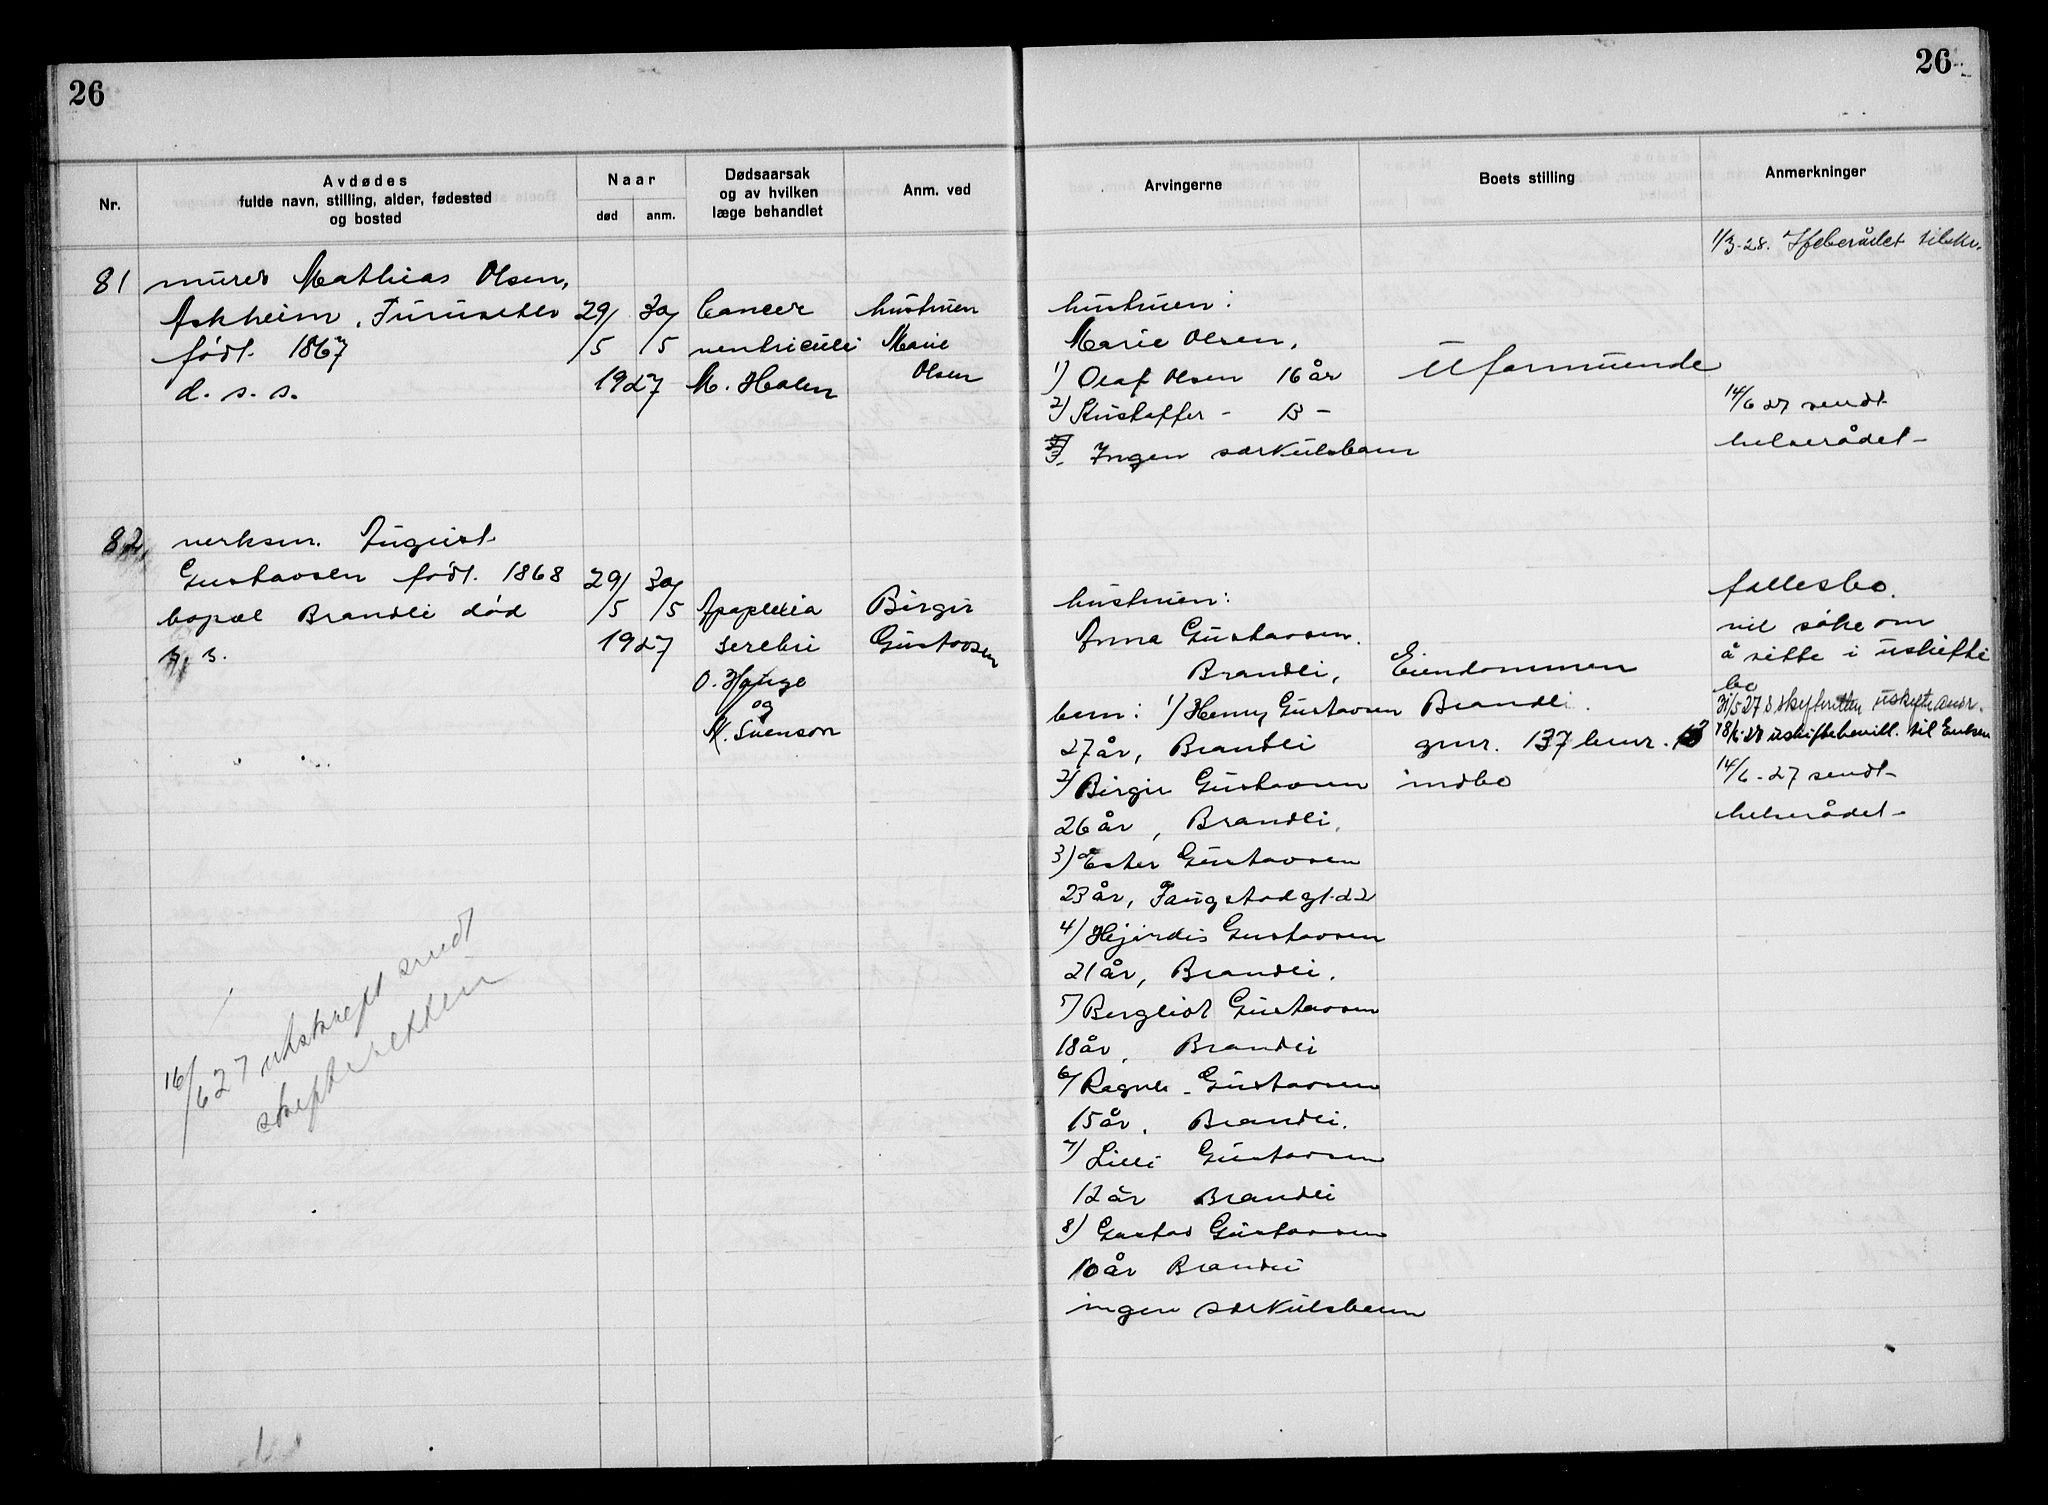 26
26
Nr.
Avdødes
fulde navn, stilling, alder, fødested
og bosted
Naar
død
anm.
Dødsaarsak
og av hvilken
læge behandlet
Anm. ved
Arvingerne
Boets stilling
Anmerkninger
81
murer Mathias Olsen,
Askheim, Furuseth
født 1867
d. s. s.
29/5
30/5
1927
Cancer
ventriculi
M. Holen
hustruen
Marie
Olsen
hustruen:
Marie Olsen,
1) Olaf Olsen 16 år
2) Kristoffer - 13 -
Ingen særkulsbarn
Uformuende
1/3-28.
14/6 27 sendt
helserådet
82
verksm. August
Gustavsen født. 1868
bopæl Brandli død
s. s.
29/5
30/5
1927
Apoplexia
serebri
O. Hauge
og
M. Svenson
Birgir
Gustavsen
hustruen:
Anna Gustavsen.
Brandli,
barn: 1) Henry Gustavsen
27 år, Brandli
2) Birgir Gustavsen
26 år, Brandli,
3) Ester Gustavsen
23 år, Faugstadgt. 22
4) Hjørdis Gustavsen
21 år, Brandli.
5) Bergliot Gustavsen
18 år, Brandli
6) Ragna Gustavsen
15 år, Brandli.
7) Lilli Gustavsen
12 år Brandli
8) Gustav Gustavsen
10 år Brandli
ingen særkulsbarn
Eiendommen
Brandli.
gnr. 137 bnr.
indbo
fællesbo.
vil søke om
å sitte i uskifte
bo
31/5 27 skifteretten uskifteandr.
18/6-27 uskiftebevill. til Enken
14/6-27 sendt
helserådet
16/6 27 utskrift sendt
skifteretten